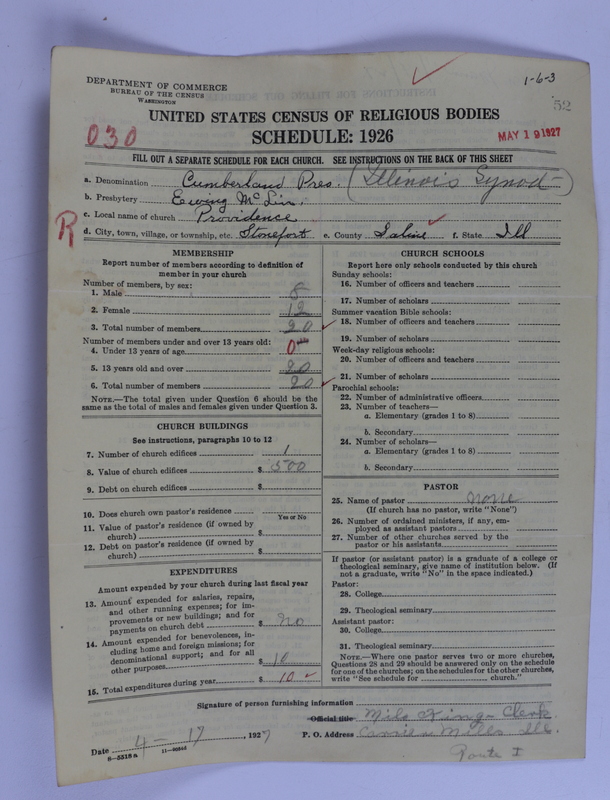 1-6-3
DEPARTMENT OF COMMERCE
BUREAU OF THE CENSUS
WASHINGTON
52
UNITED STATES CENSUS OF RELIGIOUS BODIES
SCHEDULE: 1926
030
MAY 19 1927
FILL OUT A SEPARATE SCHEDULE FOR EACH CHURCH. SEE INSTRUCTIONS ON THE BACK OF THIS SHEET
a. Denomination Cumberland Pres. (Illinois Synod)
b. Presbytery Ewing McLin.
c. Local name of church Providence
R
d. City, town, village, or township, etc. Stonefort e. County Saline f. State Ill
MEMBERSHIP
Report number of members according to definition of
member in your church
Number of members, by sex:
1. Male 8
2. Female 12
3. Total number of members 20
Number of members under and over 13 years old:
4. Under 13 years of age 0
5. 13 years old and over 20
6. Total number of members 20
NOTE.—The total given under Question 6 should be the
same as the total of males and females given under Question 3.
CHURCH BUILDINGS
See instructions, paragraphs 10 to 12
7. Number of church edifices 1
8. Value of church edifices $ 500
9. Debt on church edifices $
10. Does church own pastor's residence
Yes or No
11. Value of pastor's residence (if owned by
church) $
12. Debt on pastor's residence (if owned by
church) $
EXPENDITURES
Amount expended by your church during last fiscal year
13. Amount expended for salaries, repairs,
and other running expenses; for im-
provements or new buildings; and for
payments on church debt $ No
14. Amount expended for benevolences, in-
cluding home and foreign missions; for
denominational support; and for all
other purposes $ 10
15. Total expenditures during year $ 10
CHURCH SCHOOLS
Report here only schools conducted by this church
Sunday schools:
16. Number of officers and teachers
17. Number of scholars
Summer vacation Bible schools:
18. Number of officers and teachers
19. Number of scholars
Week-day religious schools:
20. Number of officers and teachers
21. Number of scholars
Parochial schools:
22. Number of administrative officers
23. Number of teachers—
a. Elementary (grades 1 to 8)
b. Secondary
24. Number of scholars—
a. Elementary (grades 1 to 8)
b. Secondary
PASTOR
25. Name of pastor None
(If church has no pastor, write "None")
26. Number of ordained ministers, if any, em-
ployed as assistant pastors
27. Number of other churches served by the
pastor or his assistants
If pastor (or assistant pastor) is a graduate of a college or
theological seminary, give name of institution below. (If
not a graduate, write "No" in the space indicated.)
Pastor:
28. College
29. Theological seminary
Assistant pastor:
30. College
31. Theological seminary
NOTE.—Where one pastor serves two or more churches,
Questions 28 and 29 should be answered only on the schedule
for one of the churches; on the schedules for the other churches,
write "See schedule for church."
Signature of person furnishing information
Official title Milo Clerk
Date 4-17, 1927 P. O. Address Carrier Mills Ill.
8-5518a 11-90963
Route 1